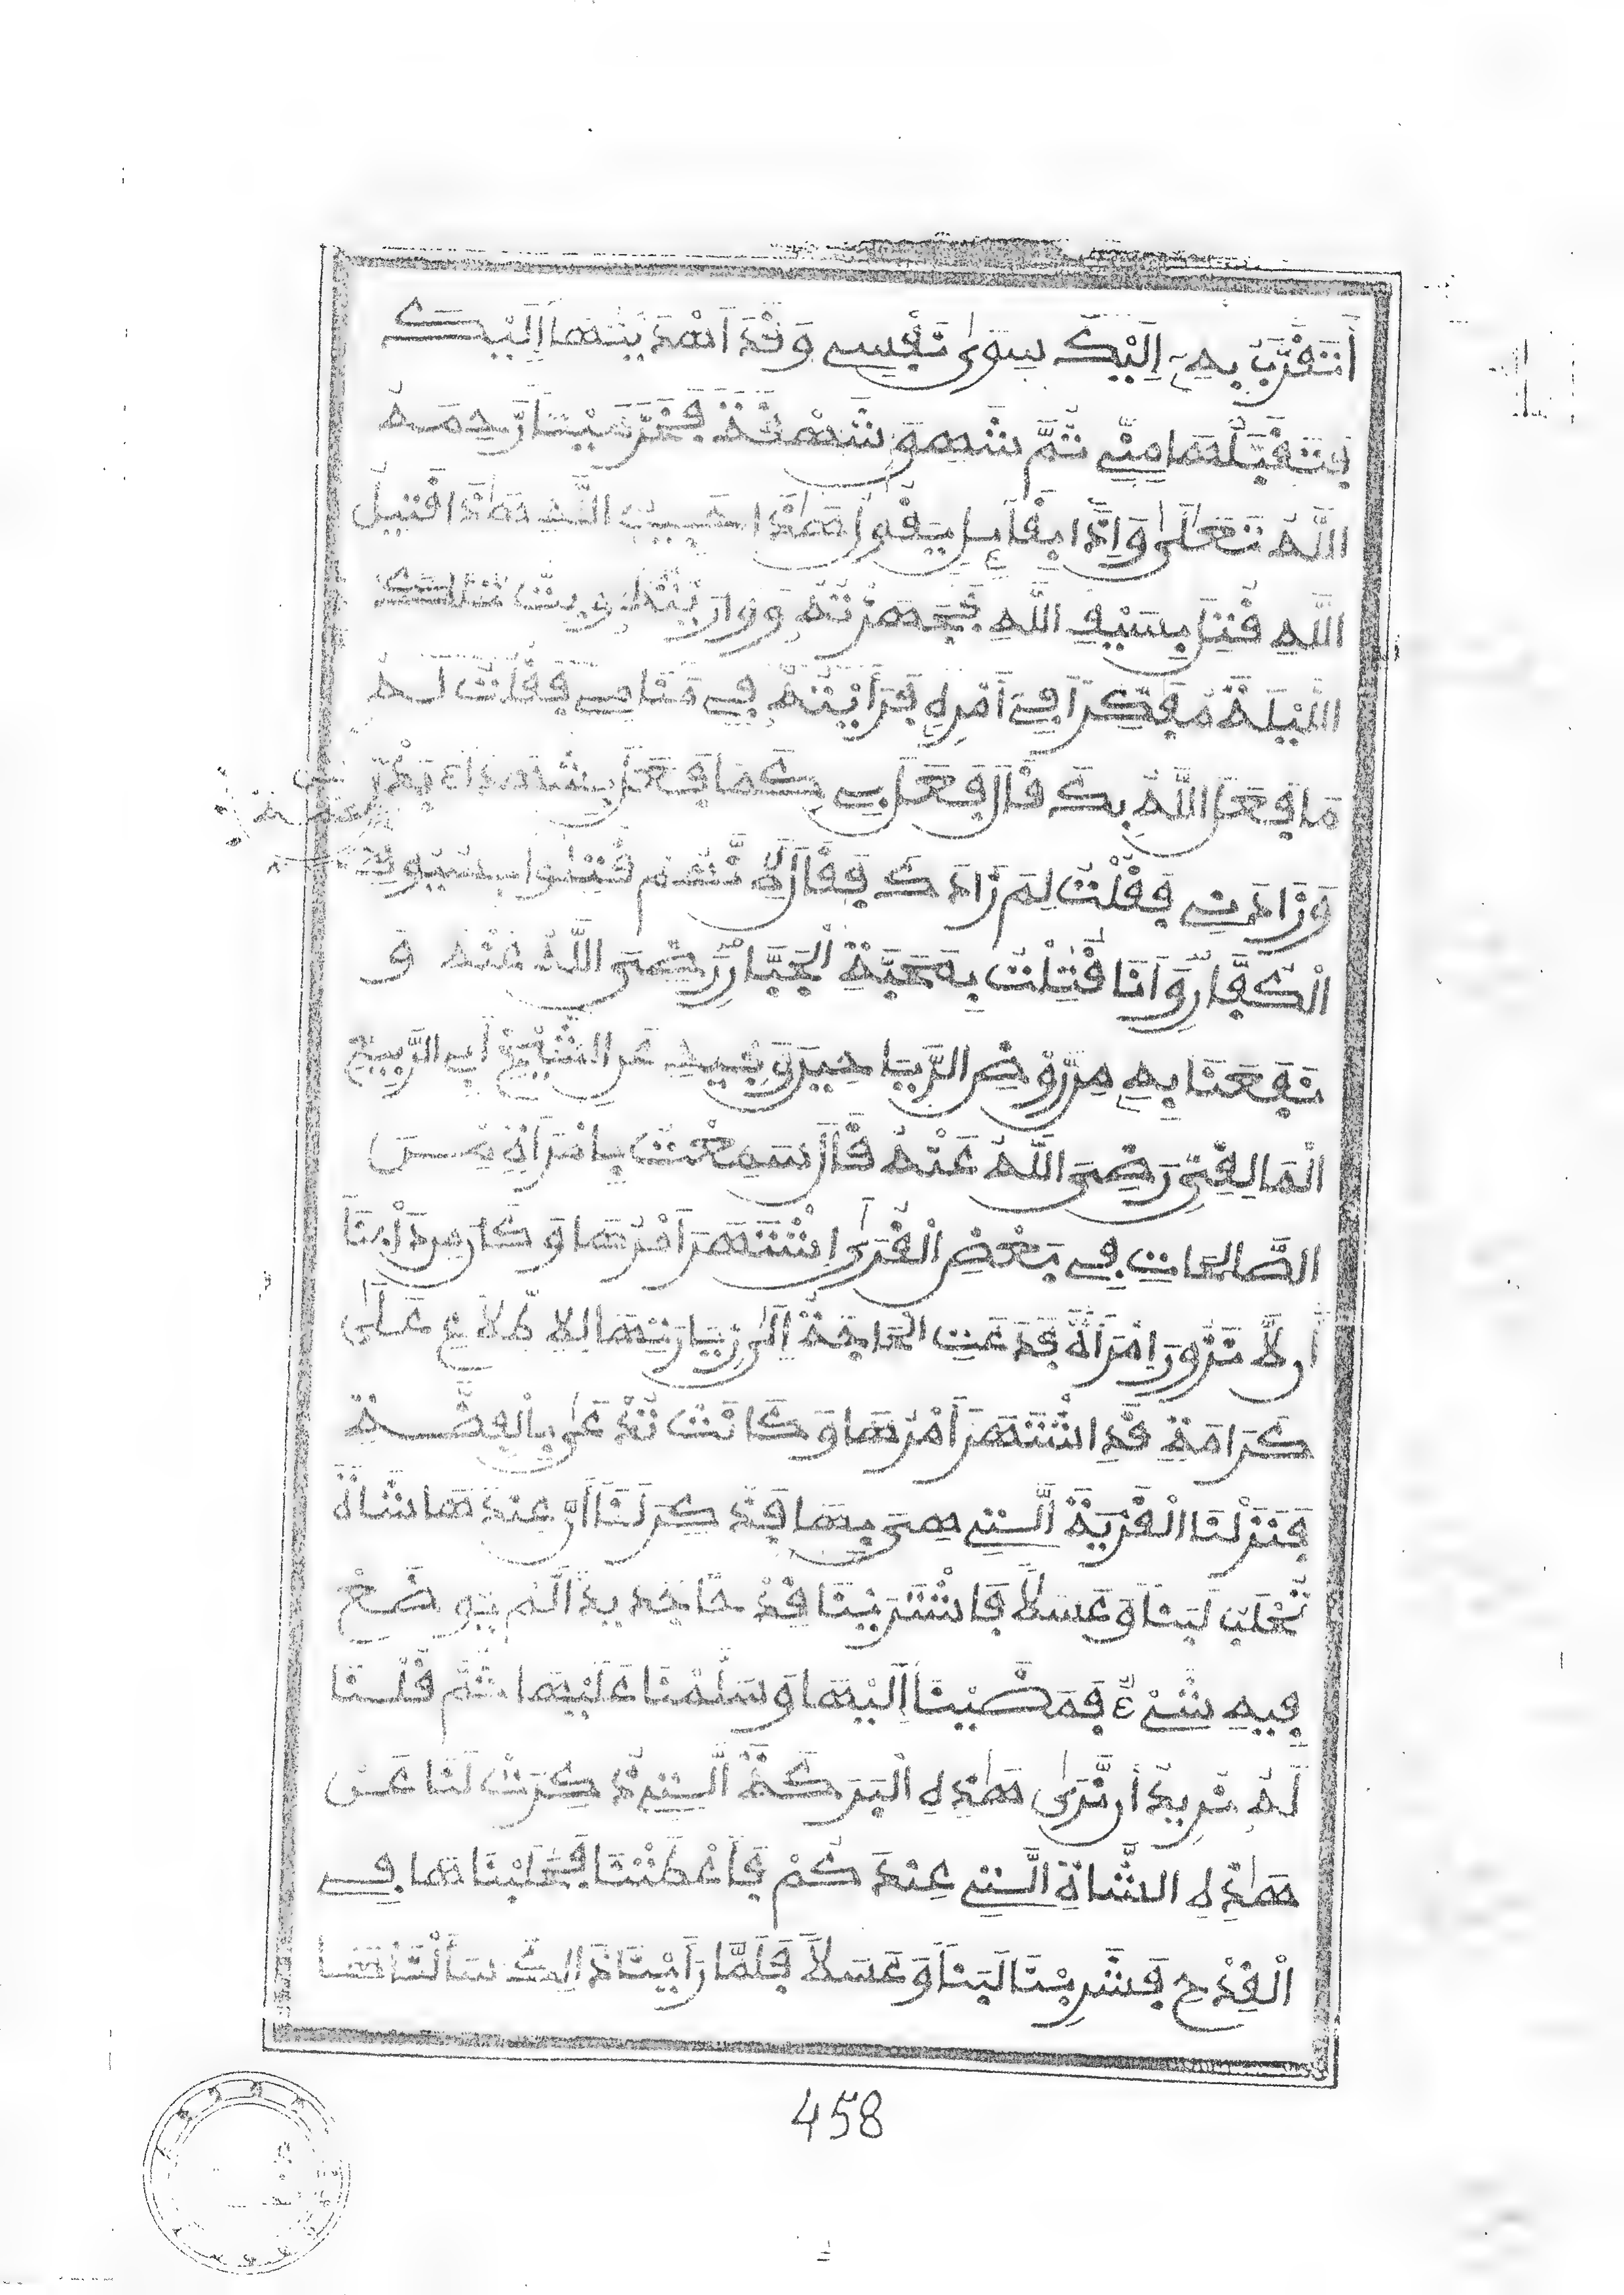 أَتَقَرَّبُ بِهِ إِلَيْكَ سِوَىٰ نَفْسِي وَقَدَ اَهْدَيْتُهَا إِلَيْكَ
فَتَقَبَّلْهَا مِنِّي ثُمَّ شَهِقَ شَهْقَةً فَخَرَّ مَيِّتاً رَحِمَهُ
اللَّهُ تَعَلَىٰ وَإِذَا بِقَآئِلٍ يَقُولُ هَٰذَا حَبِيبُ اللَّهِ هَٰذَا قَتِيلُ
اللَّهِ قُتِلَ بِسَيْفِ اللَّهِ فَجَهَّزْتُهُ وَوَارَيْتُهُ وَبِتُّ تِلْكَ
اللَّيْلَةَ مُفَكِّراً فِي أَمْرِهِ فَرَأَيْتُهُ فِي مَنَامِي فَقُلْتُ لَهُ
مَا فَعَلَ اللَّهُ بِكَ قَالَ فَعَلَ بِي كَمَا فَعَلَ بِشُهَدَاءِ بَدْرٍ
وَزَادَنِي فَقُلْتُ لِمَ زَادَكَ فَقَالَ لِأَنَّهُمْ قُتِلُوا بِسُيُوفِ
الْكُفَّارِ وَأَنَا قُتِلْتُ بِمَحَبَّةِ الْجَبَّارِ رَضِيَ اللَّهُ عَنْهُ وَ
نَفَعَنَا بِهِ مِن رَّوْضِ الرَّيَاحِينَ وَفِيهِ عَنِ الشَّيْخِ أَبِي الرَّبِيعِ
الْمَالِقِيِّ رَضِيَ اللَّهُ عَنْهُ قَالَ سَمِعْتُ بِامْرَأَةٍ مِّنَ
الصَّالِحَاتِ فِي بَعْضِ الْقُرَىٰ اشْتَهَرَ أَمْرُهَا وَكَانَ مِن دَأْبِنَا
أَن لَّا نَزُورَ امْرَأَةً فَدَعَتِ الْحَاجَةُ إِلَىٰ زِيَارَتِهَا لِلاِطِّلَاعِ عَلَىٰ
كَرَامَةٍ قَدِ اشْتَهَرَ أَمْرُهَا وَكَانَتْ تُدْعَىٰ بِالْفِضَّةِ
فَنَزَلْنَا الْقَرْيَةَ الَّتِي هِيَ بِهَا فَذُكِرَ لَنَا أَنَّ عِنْدَهَا شَاةً
تُحْلَبُ لَبَناً وَعَسَلاً فَاشْتَرَيْنَا قَدْحاً جَدِيداً لَّمْ يُوضَعْ
فِيهِ شَيْءٌ فَمَضَيْنَا إِلَيْهَا وَسَلَّمْنَا عَلَيْهَا ثُمَّ قُلْنَا
لَهُ نُرِيدُ أَن نَّرَىٰ هَٰذِهِ الْبَرَكَةَ الَّتِي ذُكِرَتْ لَنَا عَنْ
هَٰذِهِ الشَّاةِ الَّتِي عِنْدَكُمْ فَأَعْطَتْنَا فَحَلَبْنَاهَا فِي
الْقِدْحِ فَشَرِبْنَا لَبَناً وَعَسَلاً فَلَمَّا رَأَيْنَا ذَالِكَ سَأَلْنَاهَا
458